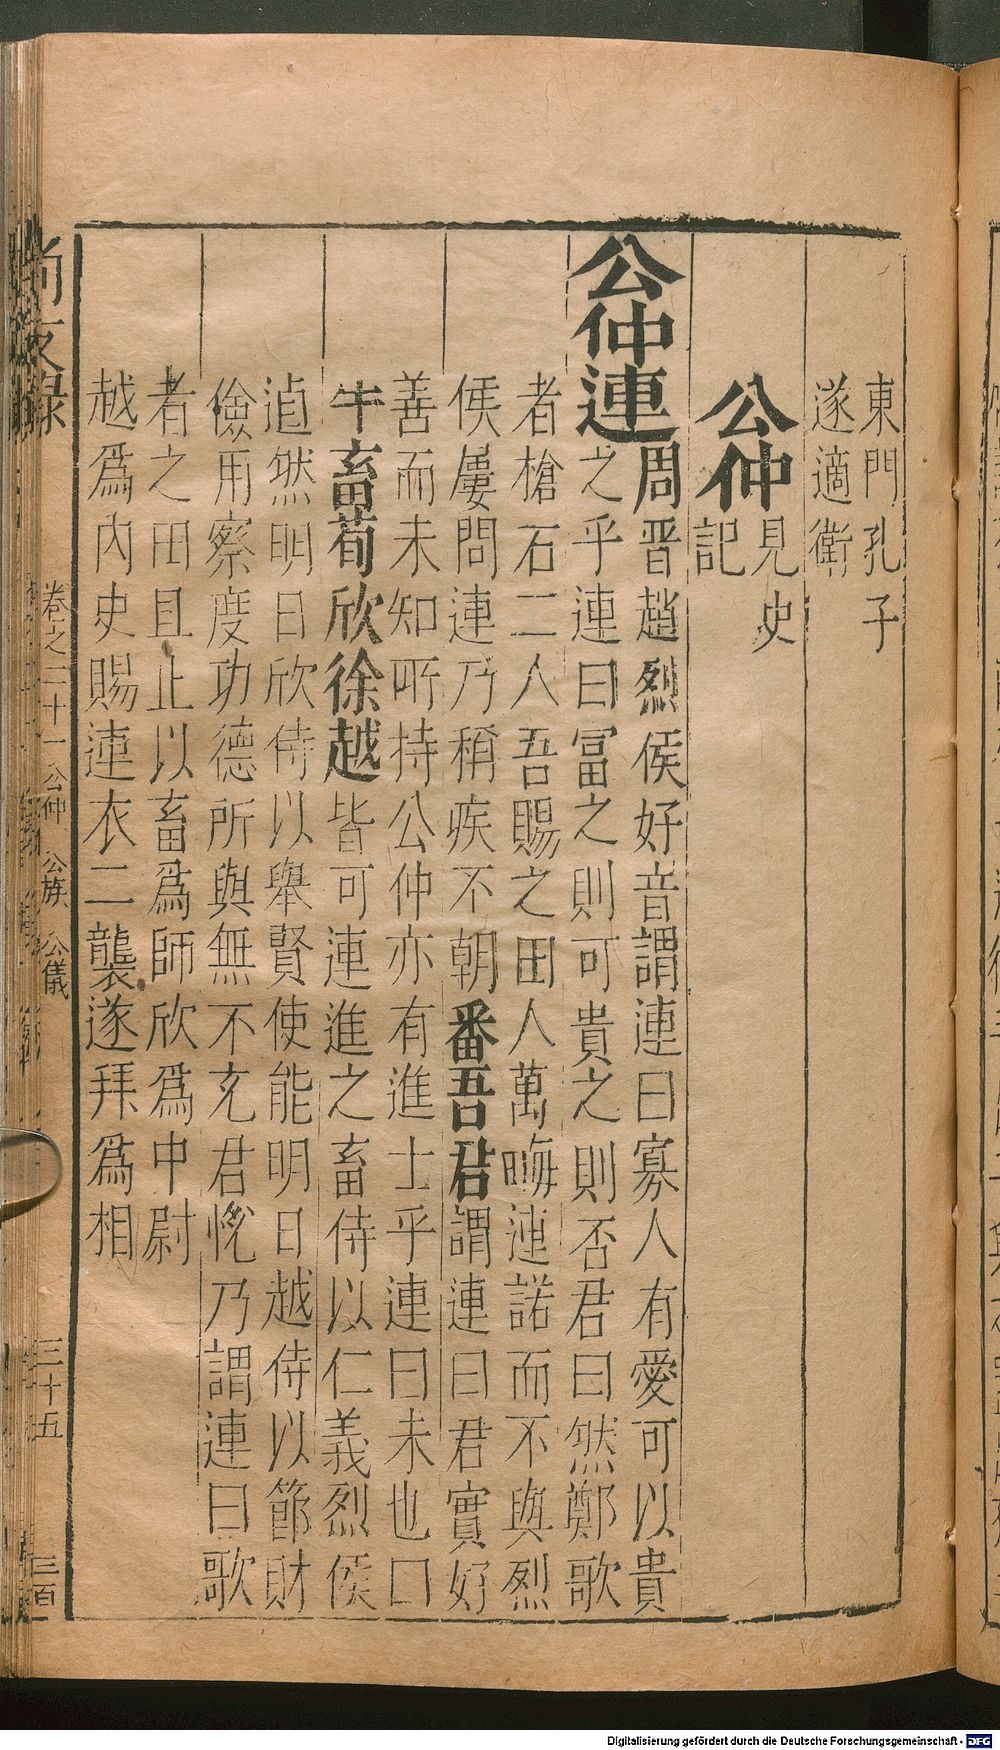 東門孔子
遂適衛
公仲見史
記
公仲連周晋趙烈侯好音謂連曰寡人有愛可以貴
之乎連曰冨之則可貴之則否君曰然鄭歌
者槍石二人吾賜之田人萬畮連諾而不與烈
侯屢問連乃稱疾不朝番吾君謂連曰君實好
善而未知所持公仲亦有進士乎連曰未也曰
牛畜荀欣徐越皆可連進之畜侍以仁義烈侯
逌然明日欣侍以舉賢使能明日越侍以節財
儉用察度功德所與無不充君悅乃謂連曰歌
者之田且止以畜爲師欣爲中尉
越爲內史賜連衣二襲遂拜爲相
尚友錄
卷之二十一 公仲 公族 公儀
三十五
三百
Digitalisierung gefördert durch die Deutsche Forschungsgemeinschaft - DFG